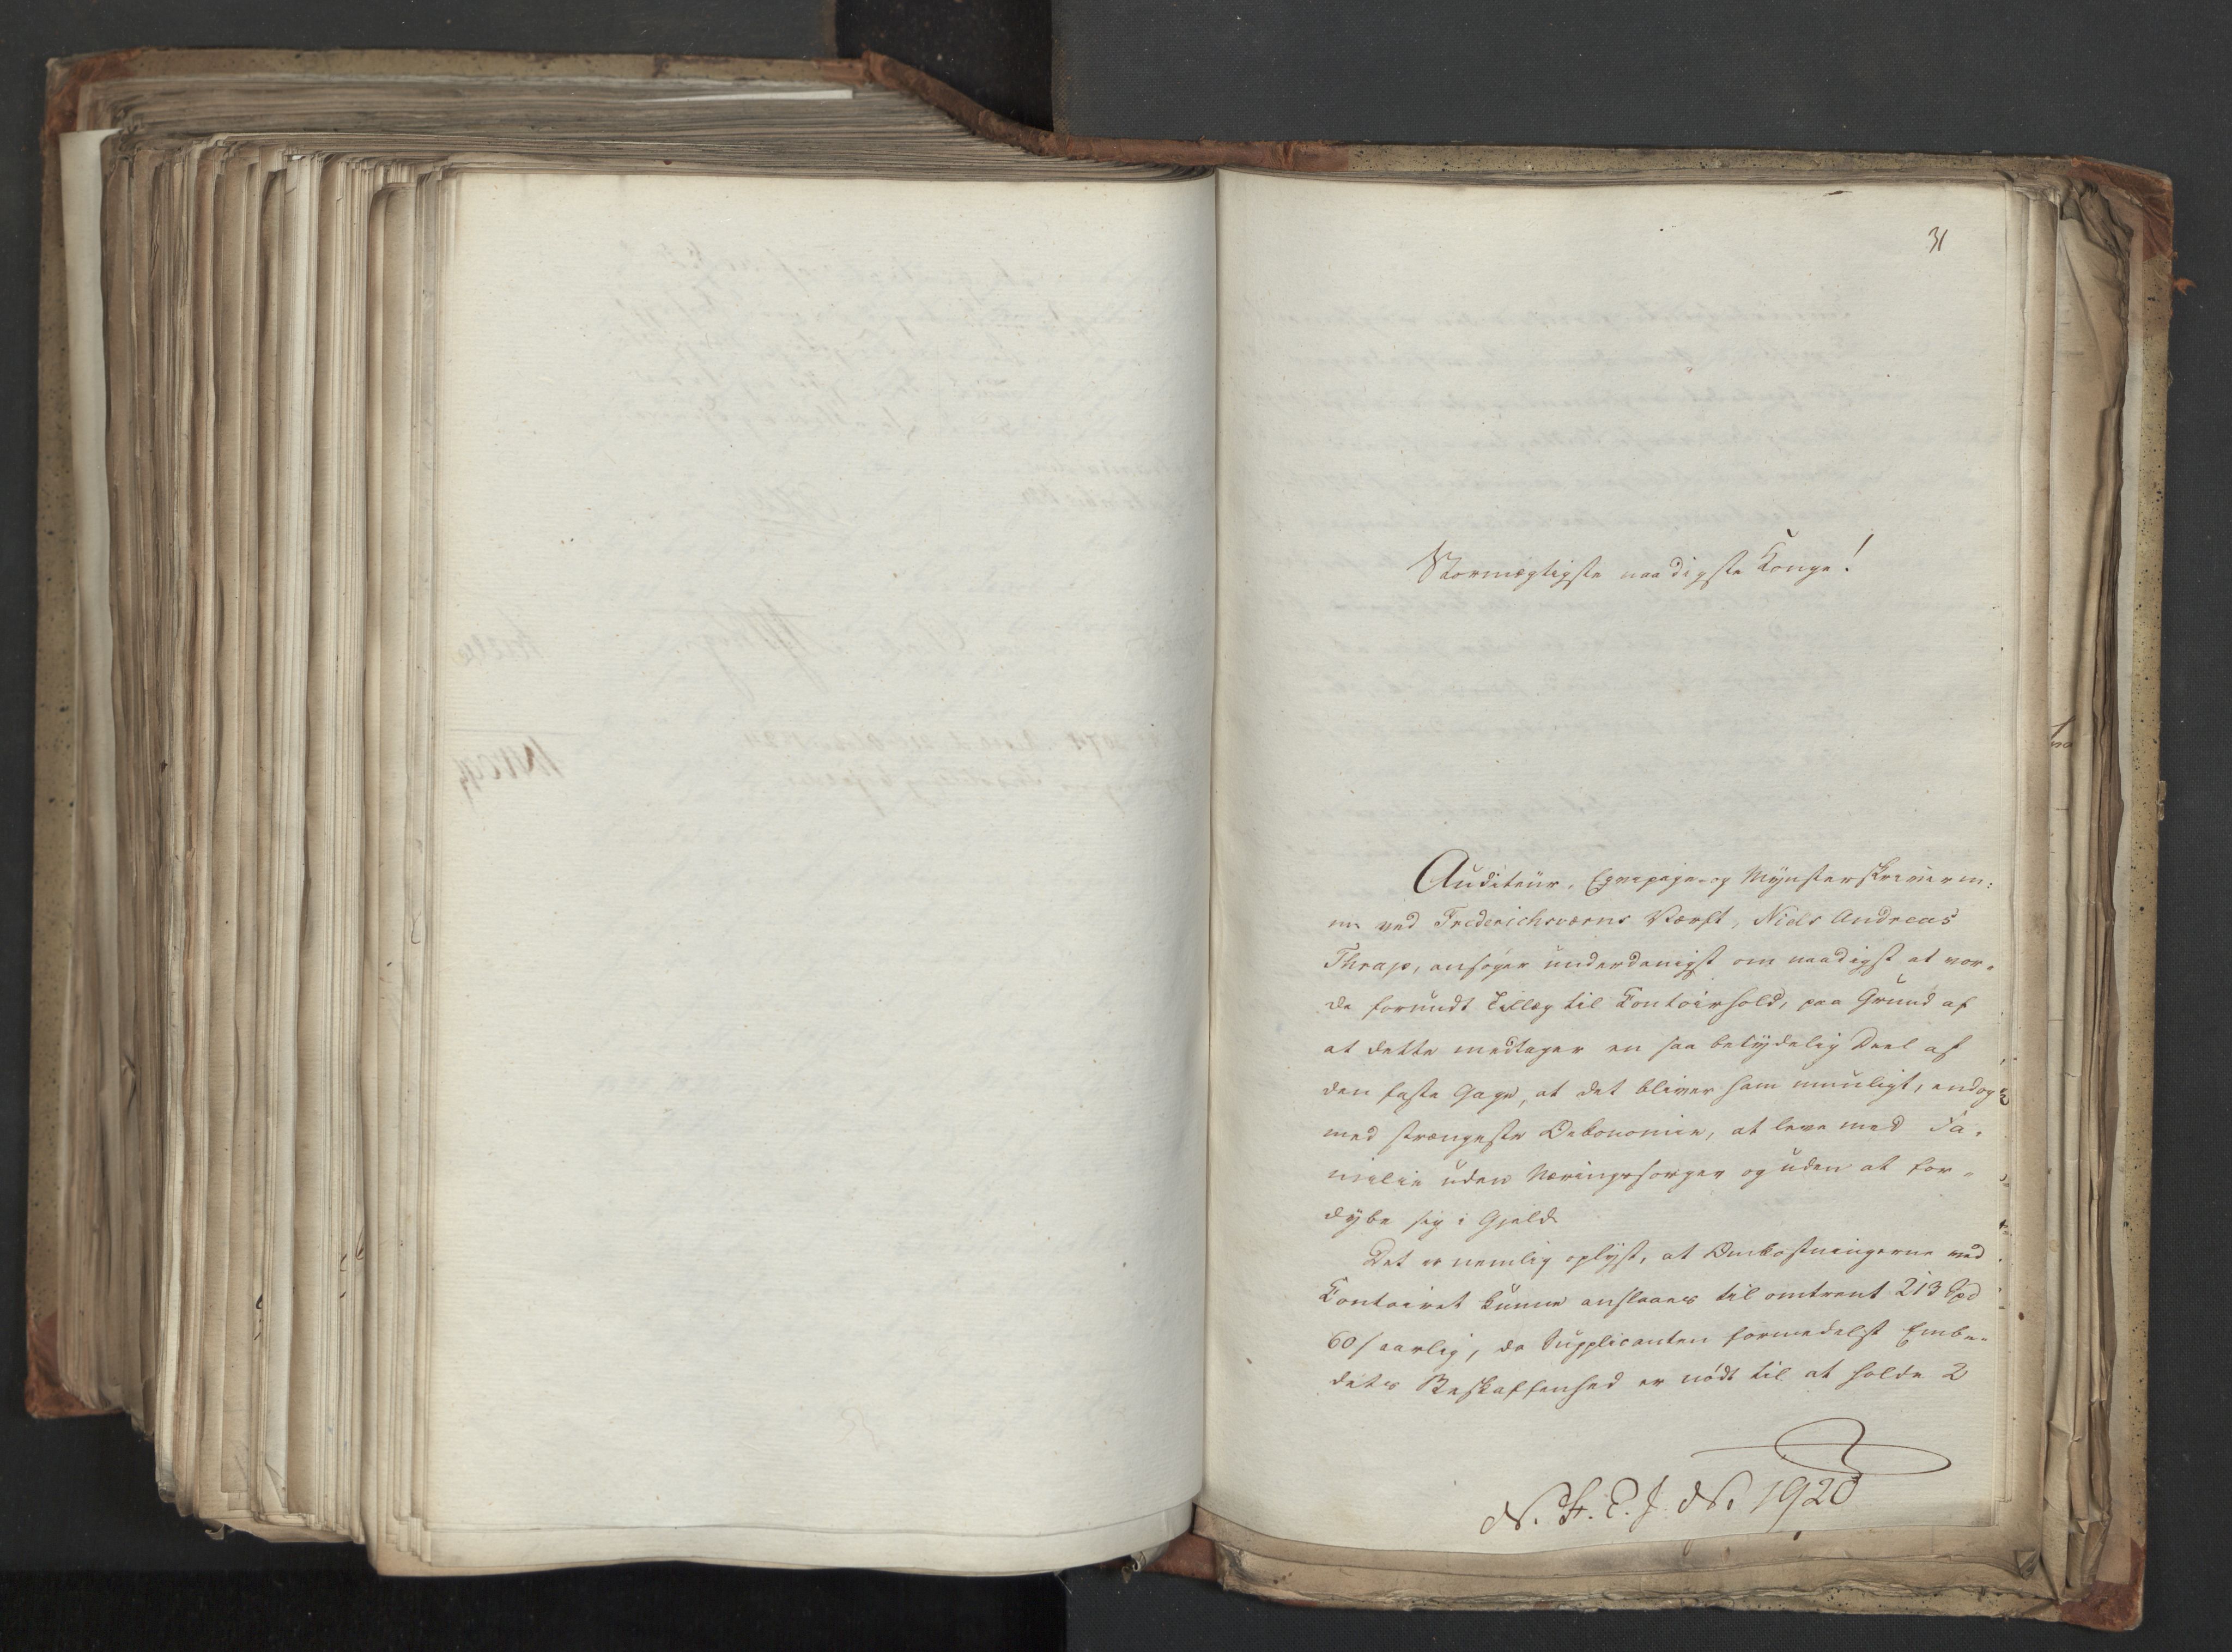 31
Stormægtigste naadigste Konge!
Auditeur, Eqvipage- og Mynsterskriveren:
ne ved Frederichsværns Værft, Niels Andreas
Thrap, ansøger underdanigst om naadigst at vor-
de forundt Tillæg til Contoirhold, paa Grund af
at dette medtager en saa betydelig Deel af
den faste Gage, at det bliver ham umuligt, endog
med strængeste Oekonomie, at leve med Fa-
milie uden Næringssorger og uden at for-
dybe sig i Gjeld.
Det er nemlig oplyst, at Omkostningerne ved
Contoiret kunne anslaaes til omtrent 213 Spd
60 s aarlig, da Supplicanten formedelst Embe-
dets Beskaffenhed er nödt til at holde 2
N. F. C. J. No 1920